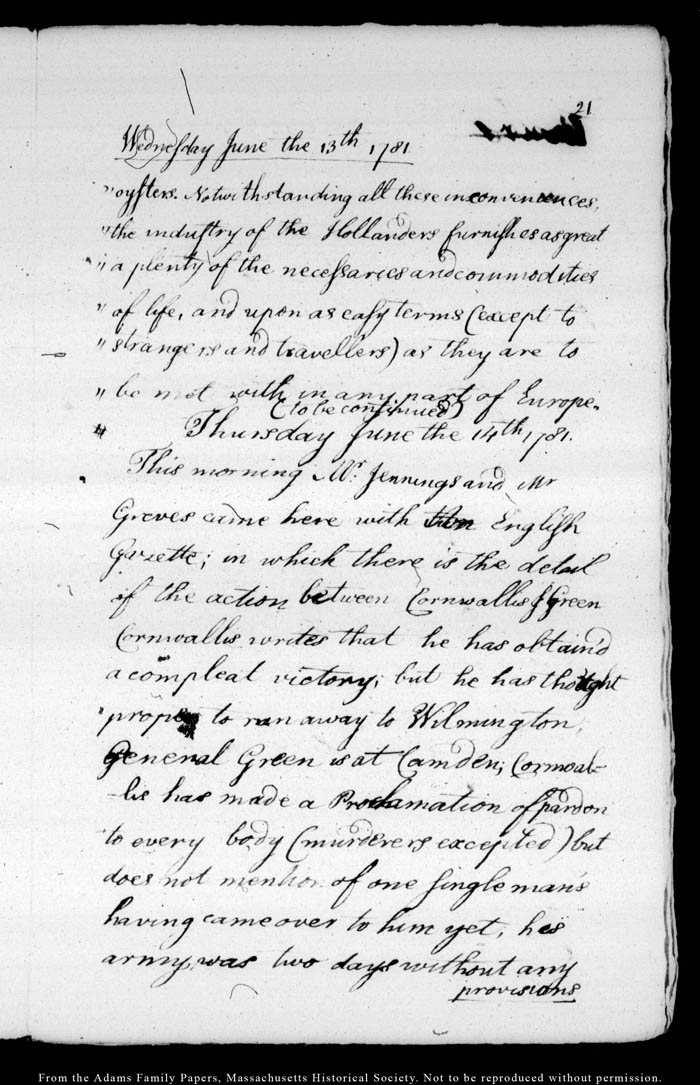 21
Wednesday June the 13th 1781.
"oysters. Notwithstanding all these inconveniences,
"the industry of the Hollanders furnishes as great
"a plenty of the necessaries and commodities
"of life, and upon as easy terms (except to
"strangers and travellers) as they are to
"be met with in any part of Europe.
(to be continued)
Thursday June the 14th 1781.
This morning Mr. Jennings and Mr
Greves came here with an English
Gazette; in which there is the detail
of the action between Cornwallis & Green
Cornwallis writes that he has obtain'd
a compleat victory; but he has thought
proper to run away to Wilmington,
General Green is at Camden; Cornwal-
-lis has made a Proclamation of pardon
to every body (murderers excepted) but
does not mention of one single man's
having came over to him yet, his
army, was two days without any
provisions
From the Adams Family Papers, Massachusetts Historical Society. Not to be reproduced without permission.